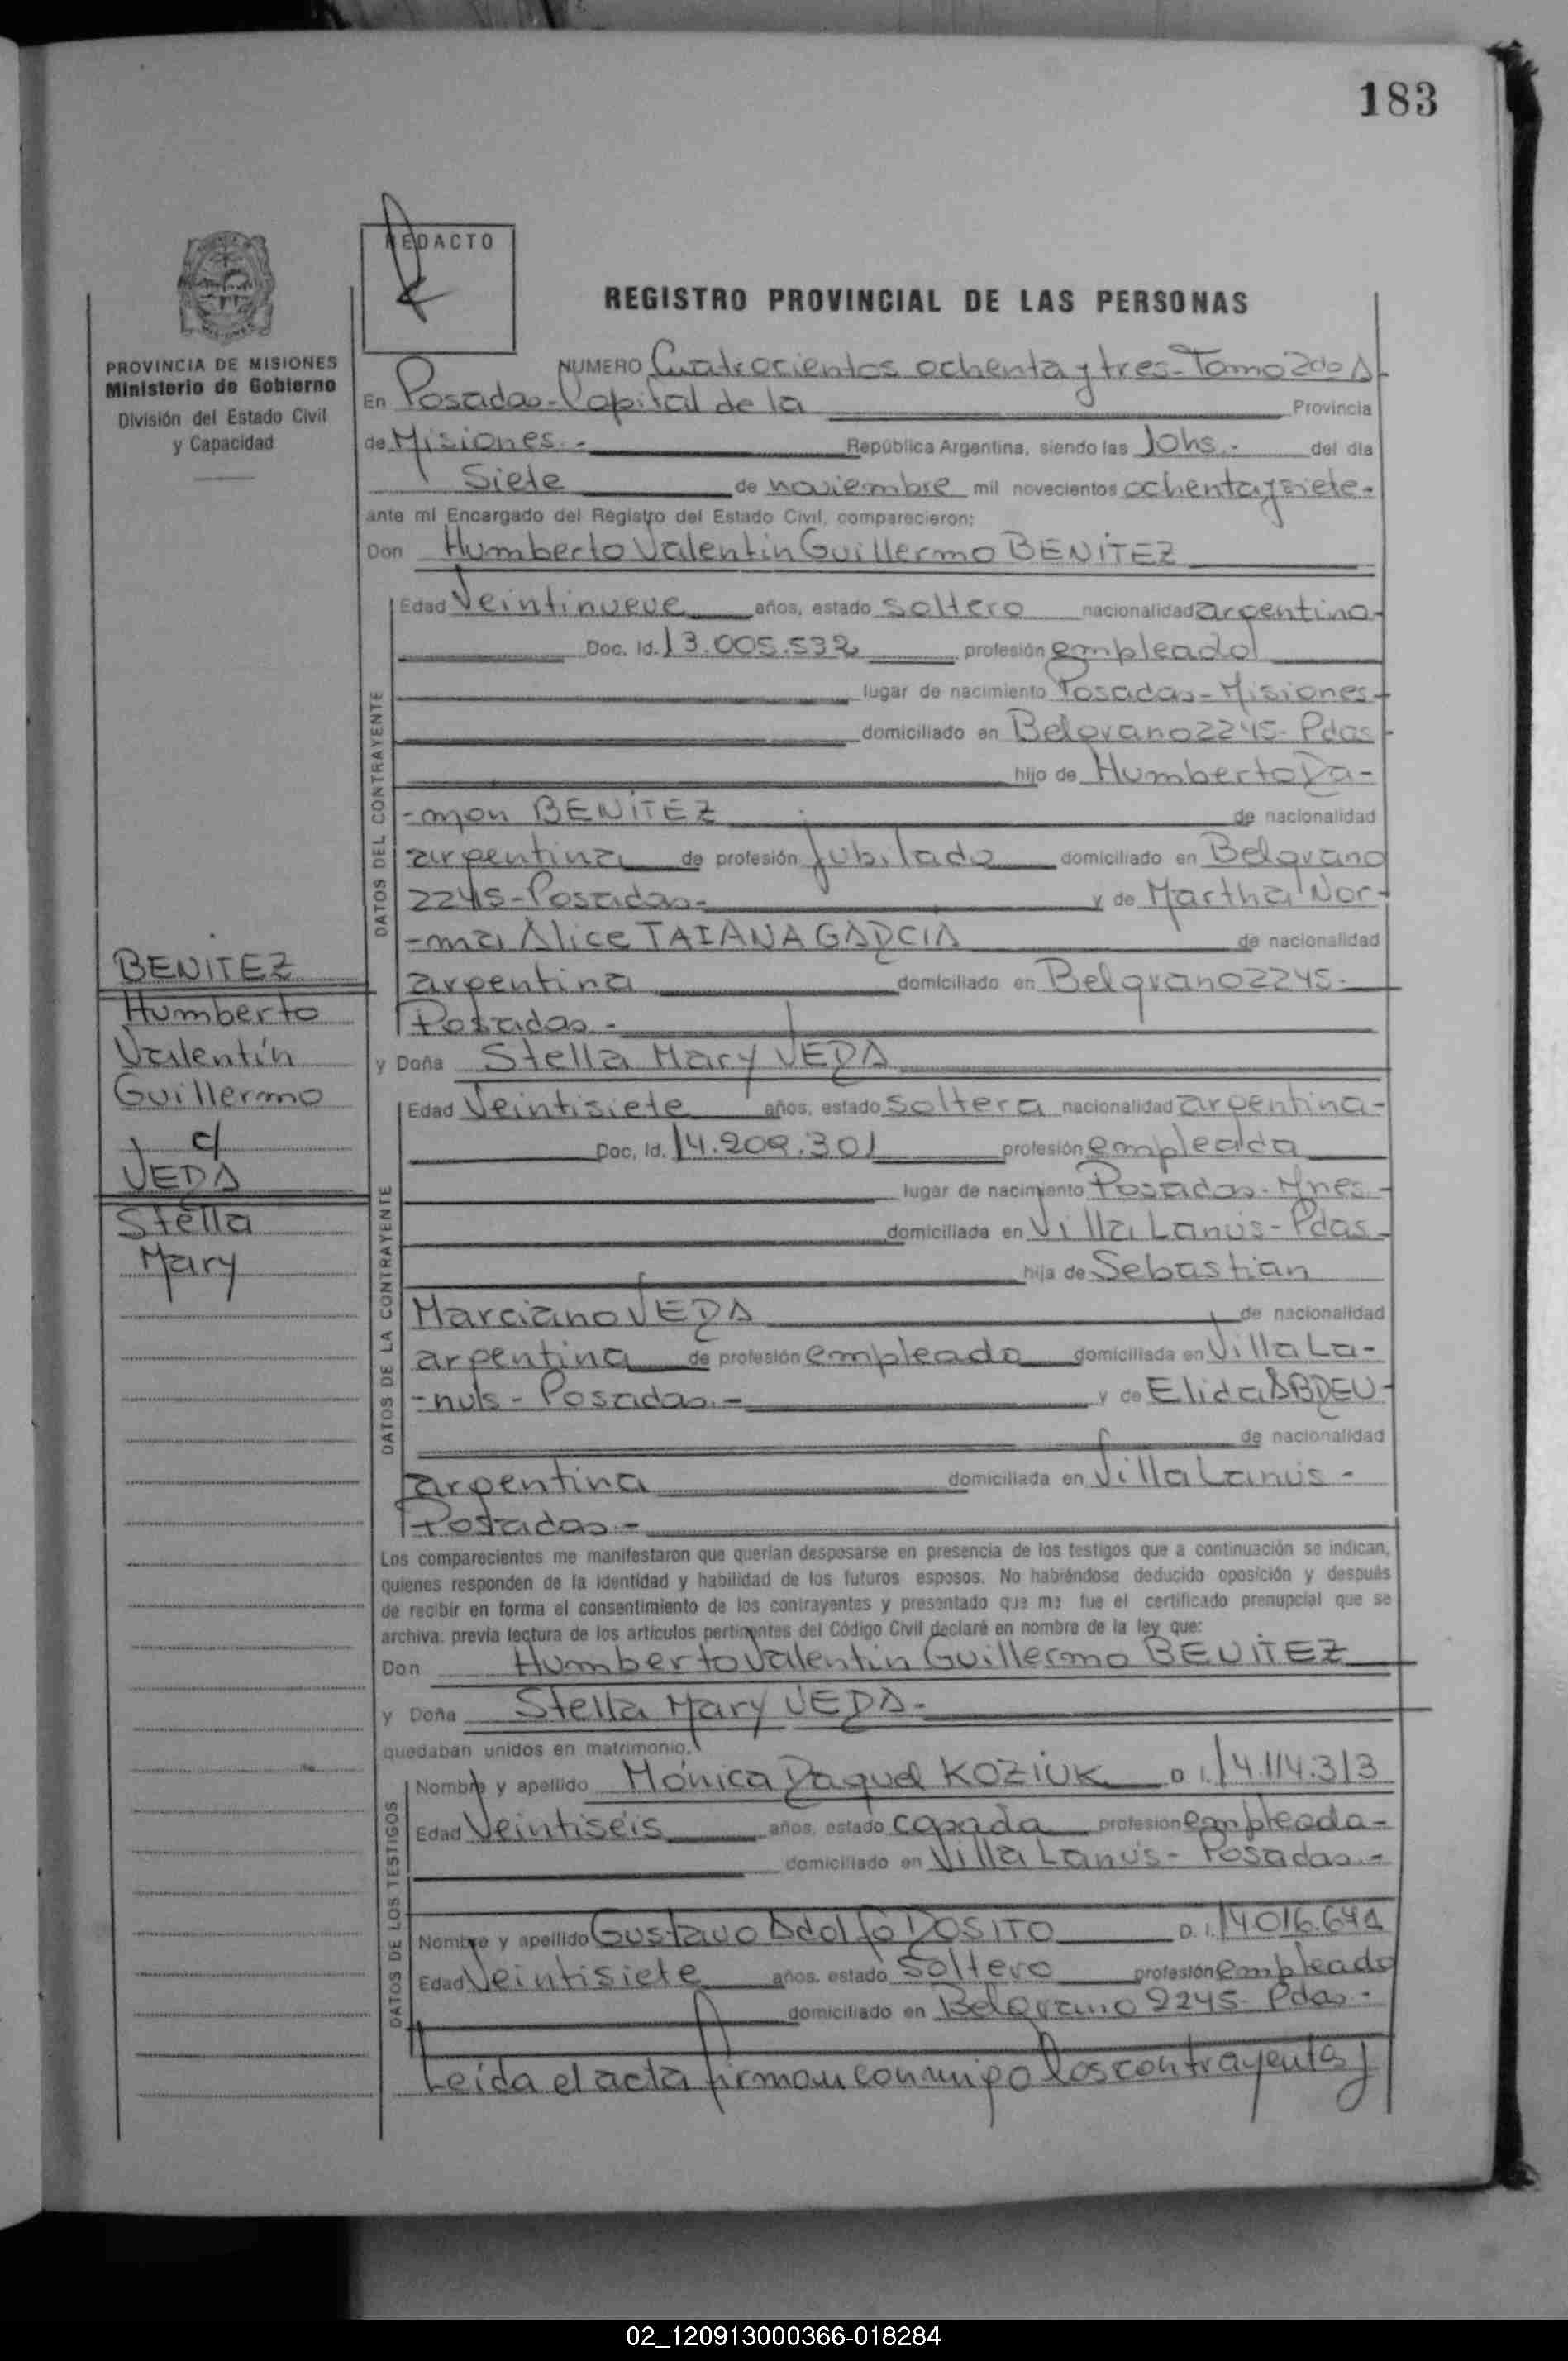 183
REDACTO
REGISTRO PROVINCIAL DE LAS PERSONAS
PROVINCIA DE MISIONES
Ministerio de Gobierno
División del Estado Civil
y Capacidad
NUMERO Cuatrocientos ochenta y tres - Tomo 2do A -
En Posadas - Capital de la Provincia
de Misiones.- República Argentina, siendo las 10hs.- del dia
Siete de noviembre mil novecientos ochenta y siete.-
ante mi Encargado del Registro del Estado Civil, comparecieron:
Don Humberto Valentin Guillermo BENITEZ
Edad Veintinueve años, estado soltero nacionalidad argentina-
Doc. Id. 13.005.532 profesión empleado
lugar de nacimiento Posadas - Misiones -
domiciliado en Belgrano 2245- Pdas -
hijo de Humberto Ra-
-mon BENITEZ de nacionalidad
argentina de profesión jubilado domiciliado en Belgrano
2245 - Posadas.- y de Martha Nor-
-ma Alice TAIANA GARCIA de nacionalidad
argentina domiciliado en Belgrano 2245-
Posadas -
y Doña Stella Mary VERA
Edad Veintisiete años, estado soltera nacionalidad argentina-
Doc. Id. 14.209.301 profesión empleada
lugar de nacimiento Posadas - Mnes -
domiciliada en Villa Lanús - Pdas -
hija de Sebastian
Marciano VERA de nacionalidad
argentina de profesión empleado domiciliada en Villa La-
-nus - Posadas.- y de Elida ABREU-
de nacionalidad
argentina domiciliada en Villa Lanús -
Posadas.-
Los comparecientes me manifestaron que querían desposarse en presencia de los testigos que a continuación se indican,
quienes responden de la identidad y habilidad de los futuros esposos. No habiéndose deducido oposición y después
de recibir en forma el consentimiento de los contrayentes y presentado que me fue el certificado prenupcial que se
archiva, previa lectura de los artículos pertinentes del Código Civil declaré en nombre de la ley que:
Don Humberto Valentin Guillermo BENITEZ
y Doña Stella Mary VERA-
quedaban unidos en matrimonio.
Nombre y apellido Mónica Raquel KOZIUK D. I. 14.114.313
Edad Veintiseis años, estado casada profesión empleada -
domiciliado en Villa Lanús - Posadas.-
Nombre y apellido Gustavo Adolfo ROSITO D. I. 14016.641
Edad Veintisiete años, estado soltero profesión empleado
domiciliado en Belgrano 2245- Pdas.-
Leída el acta firman conmigo los contrayentes y
DATOS DEL CONTRAYENTE
DATOS DE LA CONTRAYENTE
DATOS DE LOS TESTIGOS
BENITEZ
Humberto
Valentín
Guillermo
c/
VERA
Stella
Mary
02_120913000366-018284